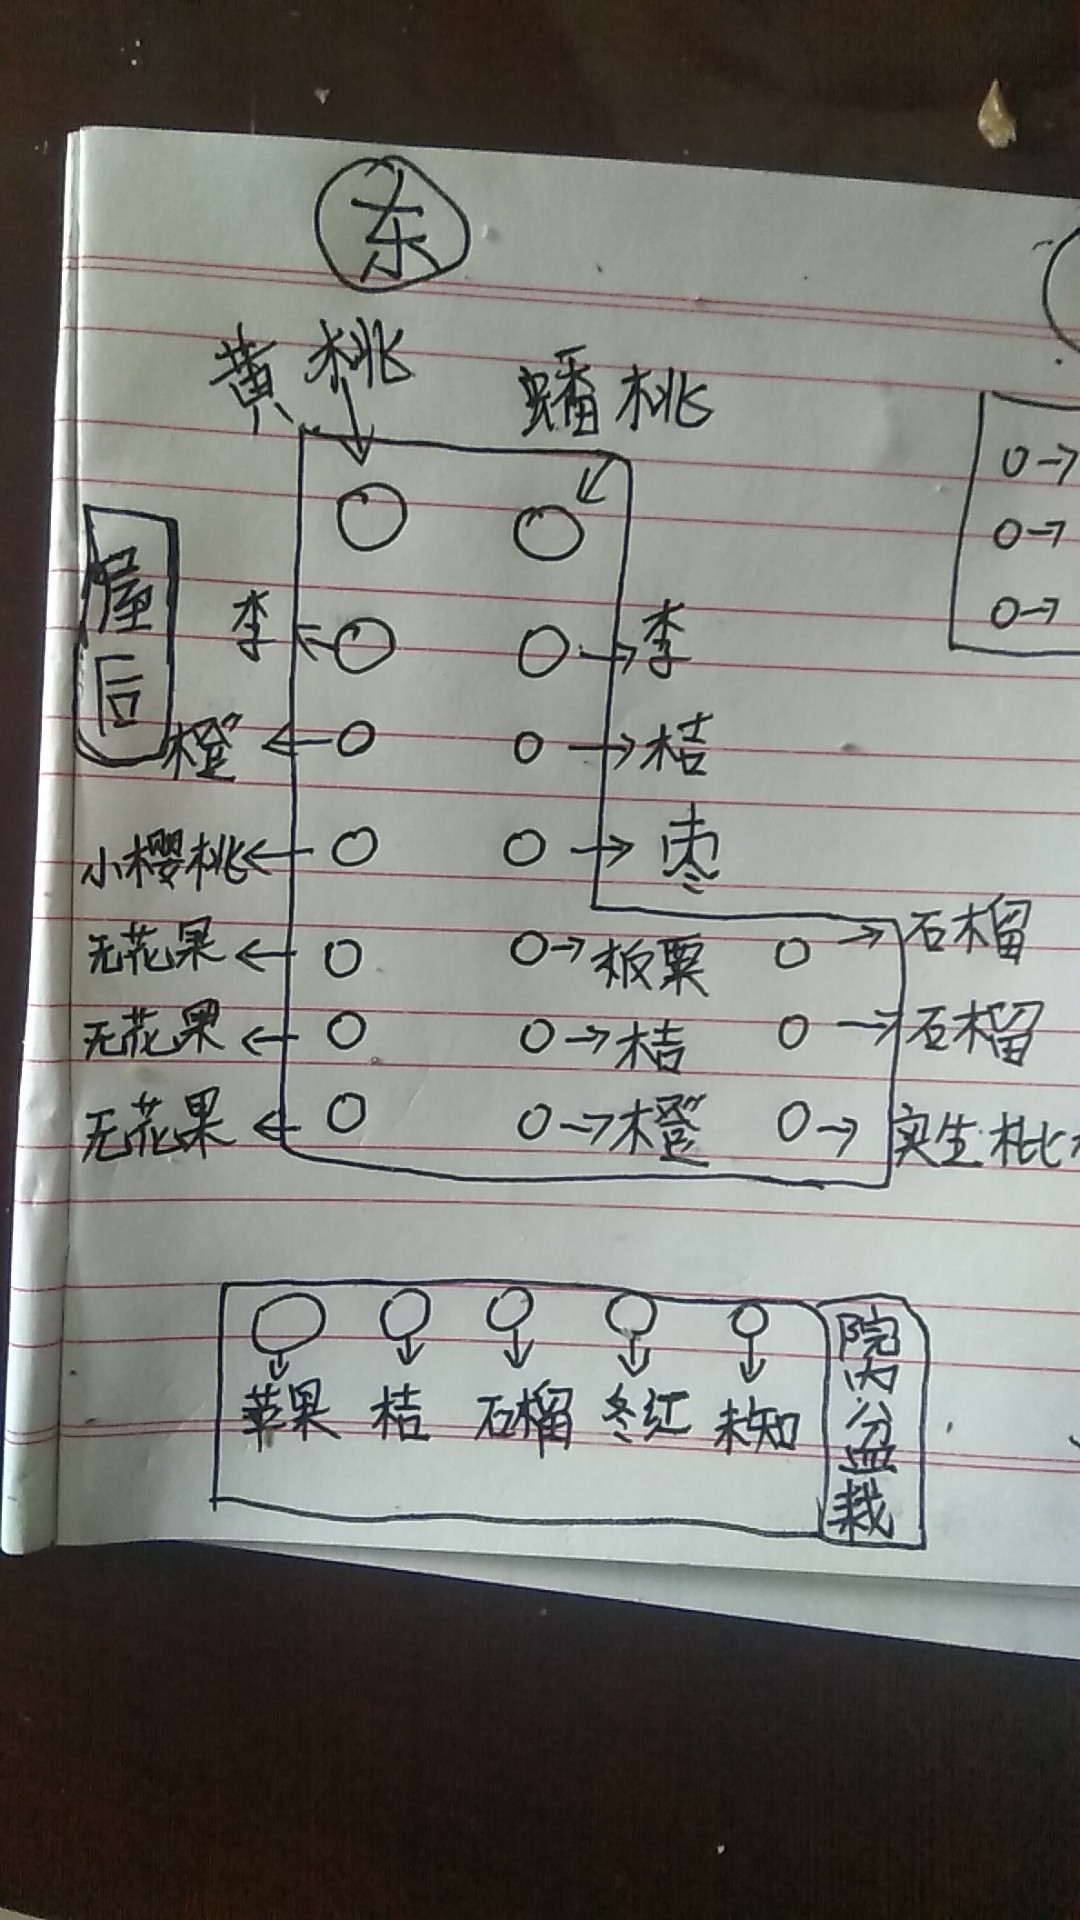 东
黄桃
蟠桃
屋后
李
李
橙
桔
小樱桃
枣
无花果
板栗
石榴
无花果
桔
石榴
无花果
橙
实生枇
苹果
桔
石榴
冬红
未知
院内盆栽